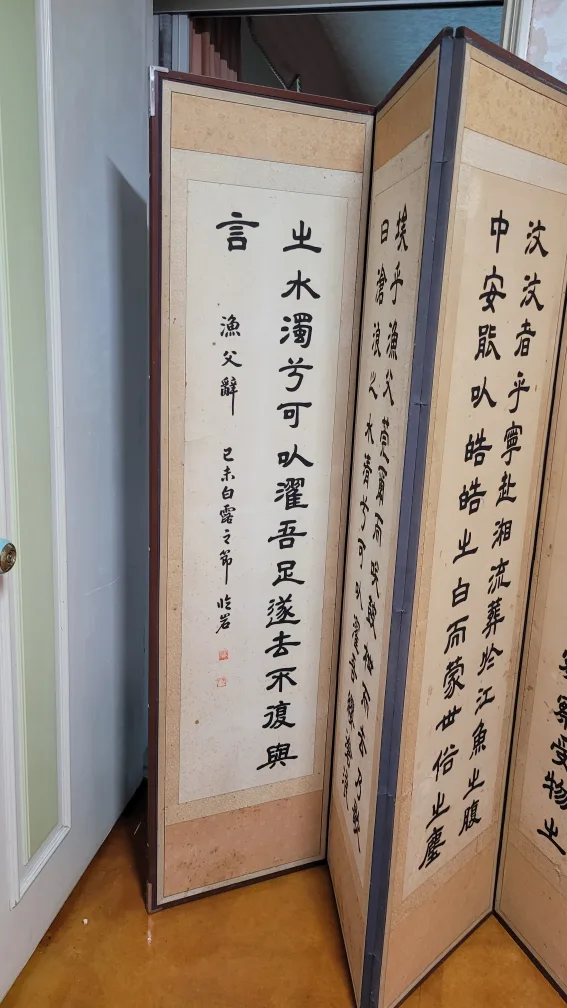 察察受物之
汶汶者乎寧赴湘流葬於江魚之腹
中安能以皓皓之白而蒙世俗之塵
埃乎漁父莞爾而笑鼓枻而去乃歌
曰滄浪之水清兮可以濯吾纓滄浪
之水濁兮可以濯吾足遂去不復與
言
漁父辭 己未白露之節